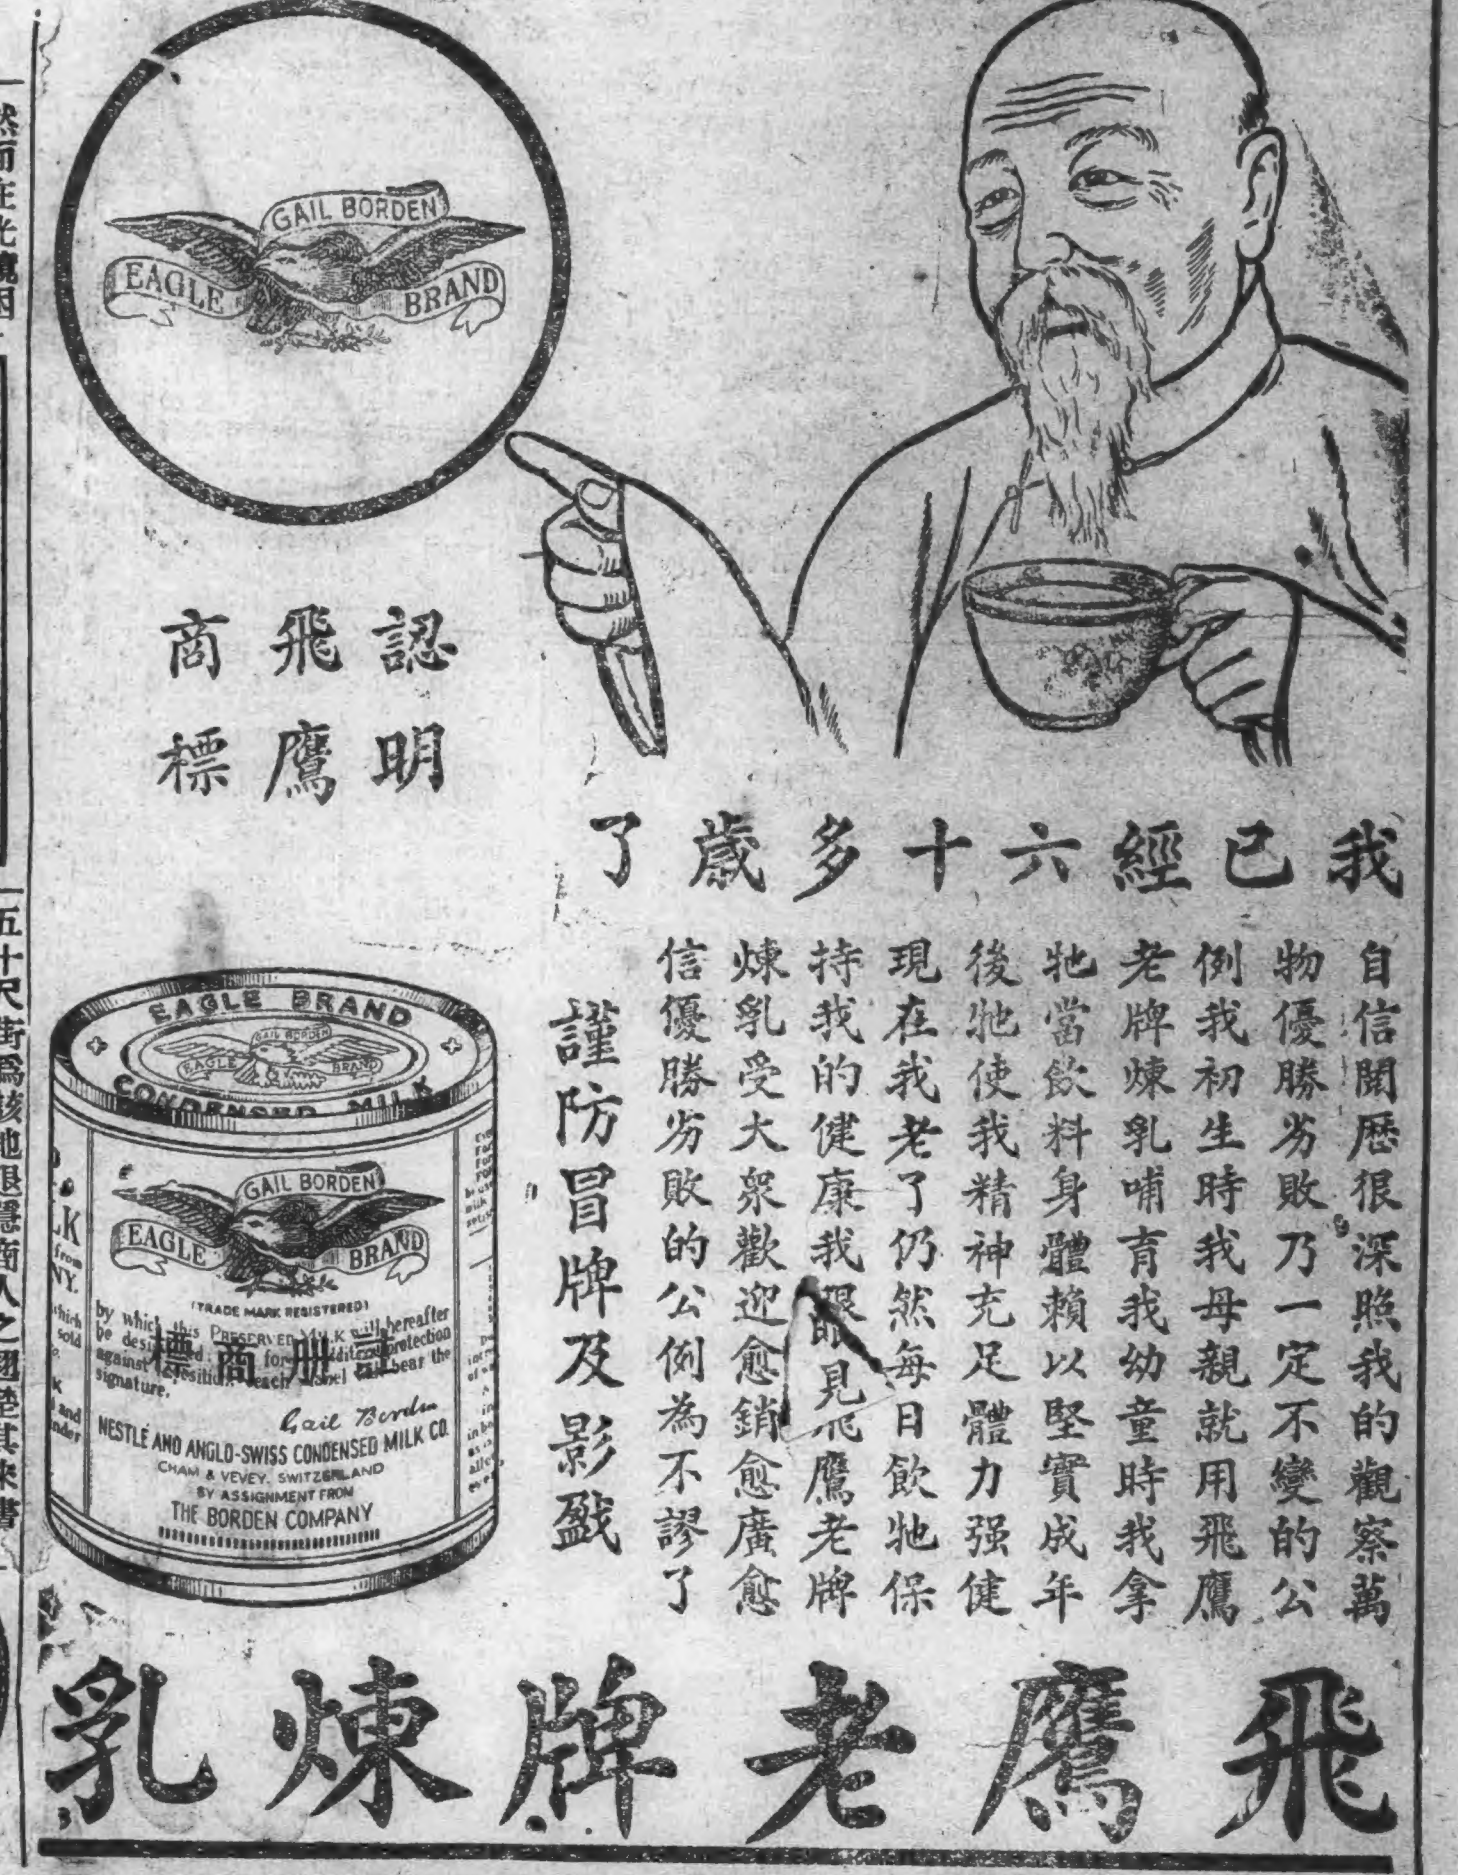 GAIL BORDEN
EAGLE BRAND
認明
飛鷹
商標
我已經六十多歲了
自信閱歷很深照我的觀察萬
物優勝劣敗乃一定不變的公
例我初生時我母親就用飛鷹
老牌煉乳哺育我幼童時我拿
牠當飲料身體賴以堅實成年
後牠使我精神充足體力强健
現在我老了仍然每日飲牠保
持我的健康我眼見飛鷹老牌
煉乳受大衆歡迎愈銷愈廣愈
信優勝劣敗的公例為不謬了
謹防冒牌及影戤
EAGLE BRAND
GAIL BORDEN
EAGLE BRAND
CONDENSED MILK
GAIL BORDEN
EAGLE BRAND
(TRADE MARK REGISTERED)
by which this PRESERVED MILK will hereafter
be for protection
against each label will bear the
signature.
註册商標
Gail Borden
NESTLÉ AND ANGLO-SWISS CONDENSED MILK CO.
CHAM & VEVEY, SWITZERLAND
BY ASSIGNMENT FROM
THE BORDEN COMPANY
飛鷹老牌煉乳
五十尺街爲該地退隱商人之